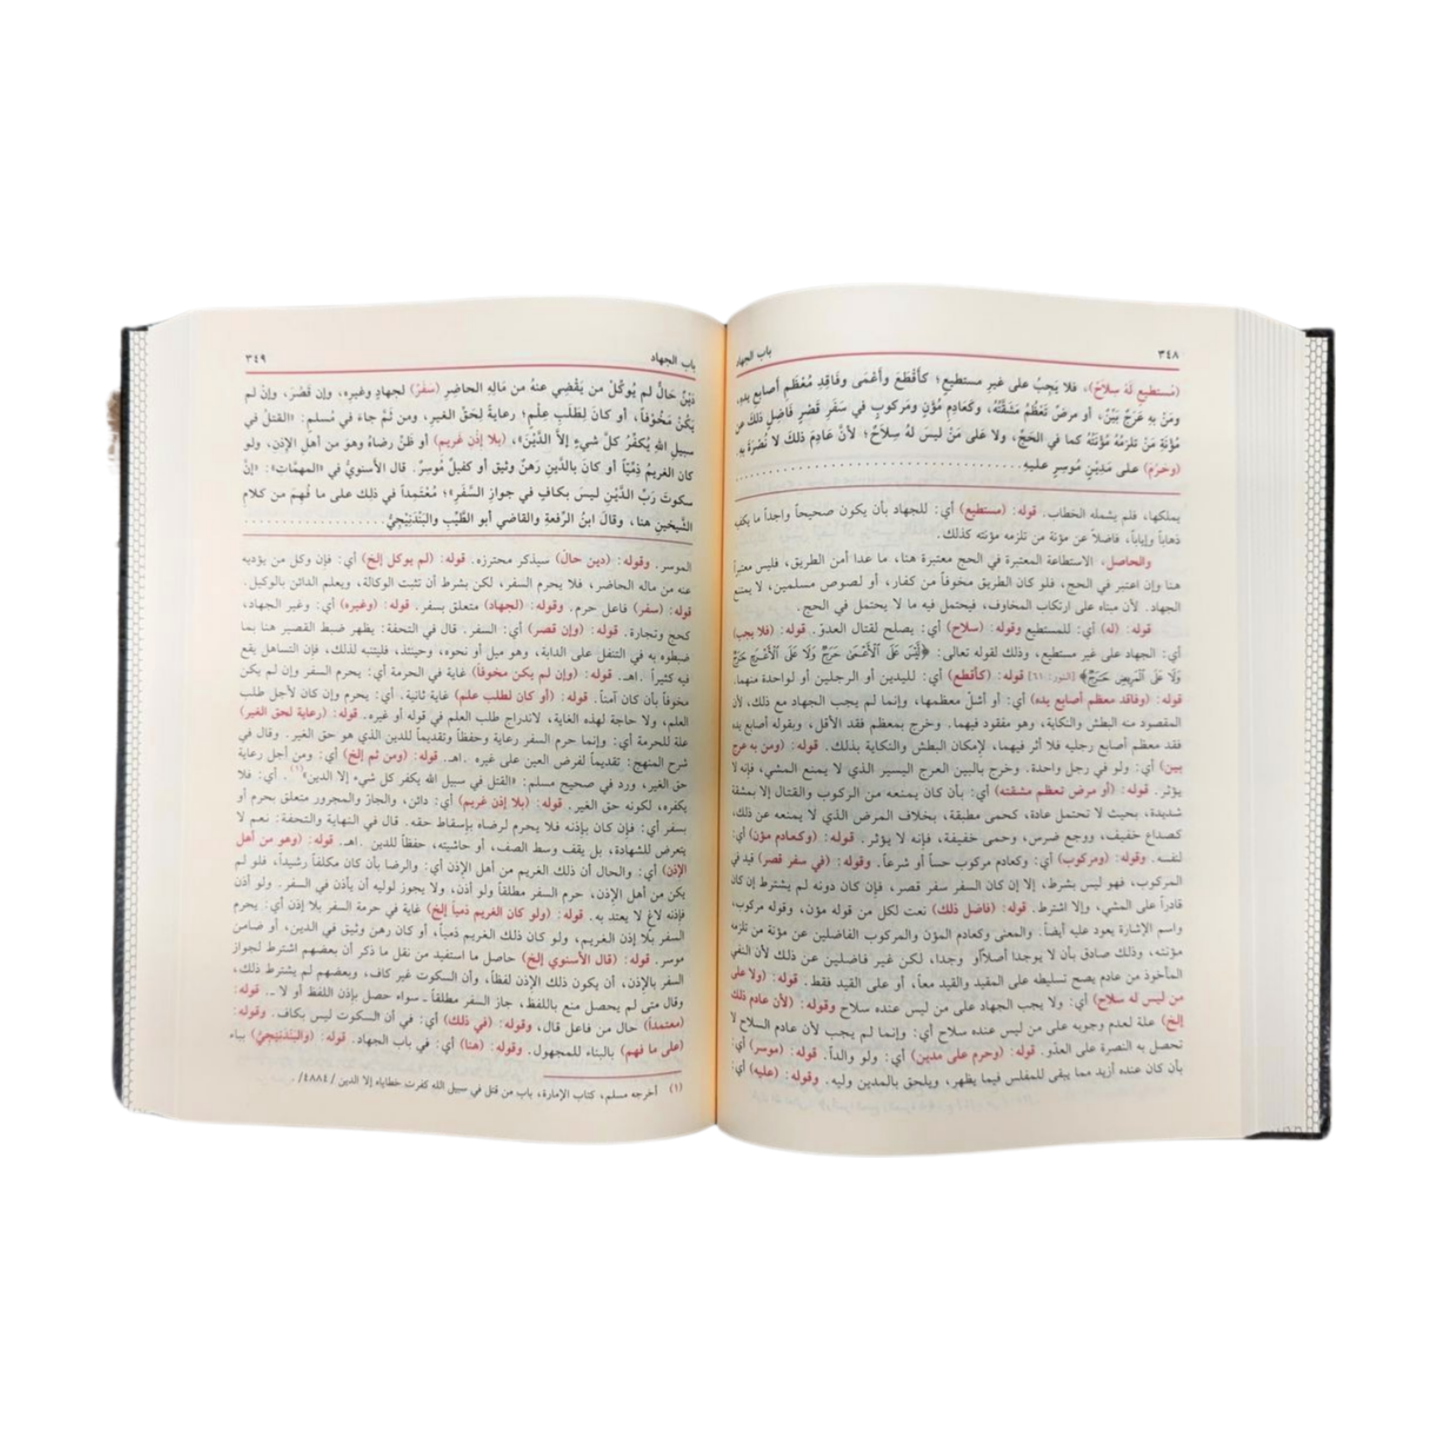 ٣٤٨
باب الجهاد
(مُستطيعٍ لَهُ سِلاحٌ)، فلا يَجِبُ على غيرِ مستطيعٍ؛ كأَقْطَعَ وأَعْمَى وفَاقِدِ مُعْظَمِ أَصابعِ يدِهِ،
ومَنْ بهِ عَرَجٌ بَيِّنٌ، أو مرضٌ تَعْظُمُ مَشَقَّتُهُ، وكَعَادِمِ مُؤَنٍ ومَركوبٍ في سَفَرِ قَصْرٍ فَاضِلٍ ذلكَ عن
مُؤْنَةِ مَنْ تلزمُهُ مُؤْنَتُهُ كما في الحَجِّ، ولا عَلى مَنْ ليسَ لهُ سِلاَحٌ؛ لأَنَّ عَادِمَ ذلكَ لا نُصْرَةَ بهِ.
(وحَرُمَ) على مَدِيْنٍ مُوسِرٍ عليهِ
يملكها، فلم يشمله الخطاب. قوله: (مستطيع) أي: للجهاد بأن يكون صحيحاً واجداً ما يكفيه
ذهاباً وإياباً، فاضلاً عن مؤنة من تلزمه مؤنته كذلك.
والحاصل، الاستطاعة المعتبرة في الحج معتبرة هنا، ما عدا أمن الطريق، فليس معتبراً
هنا وإن اعتبر في الحج، فلو كان الطريق مخوفاً من كفار، أو لصوص مسلمين، لا يمنع
الجهاد. لأن مبناه على ارتكاب المخاوف، فيحتمل فيه ما لا يحتمل في الحج.
قوله: (له) أي: للمستطيع وقوله: (سلاح) أي: يصلح لقتال العدوّ. قوله: (فلا يجب)
أي: الجهاد على غير مستطيع، وذلك لقوله تعالى: ﴿لَّيْسَ عَلَى ٱلْأَعْمَىٰ حَرَجٌ وَلَا عَلَى ٱلْأَعْرَجِ حَرَجٌ
وَلَا عَلَى ٱلْمَرِيضِ حَرَجٌ﴾ [النور: ٦١] قوله: (كأقطع) أي: لليدين أو الرجلين أو لواحدة منهما.
قوله: (وفاقد معظم أصابع يده) أي: أو أشلّ معظمها، وإنما لم يجب الجهاد مع ذلك، لأن
المقصود منه البطش والنكاية، وهو مفقود فيهما. وخرج بمعظم فقد الأقل، وبقوله أصابع يده
فقد معظم أصابع رجليه فلا أثر فيهما، لإمكان البطش والنكاية بذلك. قوله: (ومن به عرج
بين) أي: ولو في رجل واحدة. وخرج بالبين العرج اليسير الذي لا يمنع المشي، فإنه لا
يؤثر. قوله: (أو مرض تعظم مشقته) أي: بأن كان يمنعه من الركوب والقتال إلا بمشقة
شديدة، بحيث لا تحتمل عادة، كحمى مطبقة، بخلاف المرض الذي لا يمنعه عن ذلك،
كصداع خفيف، ووجع ضرس، وحمى خفيفة، فإنه لا يؤثر. قوله: (وكعادم مؤن) أي:
لنفسه. وقوله: (ومركوب) أي: وكعادم مركوب حساً أو شرعاً. وقوله: (في سفر قصر) قيد في
المركوب، فهو ليس بشرط، إلا إن كان السفر سفر قصر، فإن كان دونه لم يشترط إن كان
قادراً على المشي، وإلا اشترط. قوله: (فاضل ذلك) نعت لكل من قوله مؤن، وقوله مركوب،
واسم الإشارة يعود عليه أيضاً. والمعنى وكعادم المؤن والمركوب الفاضلين عن مؤنة من تلزمه
مؤنته، وذلك صادق بأن لا يوجدا أصلاً أو وجدا، لكن غير فاضلين عن ذلك لأن النفي
المأخوذ من عادم يصح تسليطه على المقيد والقيد معاً، أو على القيد فقط. قوله: (ولا على
من ليس له سلاح) أي: ولا يجب الجهاد على من ليس عنده سلاح وقوله: (لأن عادم ذلك
إلخ) علة لعدم وجوبه على من ليس عنده سلاح أي: وإنما لم يجب لأن عادم السلاح لا
تحصل به النصرة على العدّو. قوله: (وحرم على مدين) أي: ولو والداً. قوله: (موسر) أي:
بأن كان عنده أزيد مما يبقى للمفلس فيما يظهر، ويلحق بالمدين وليه. وقوله: (عليه) أي:
باب الجهاد
٣٤٩
دَيْنٌ حَالٌّ لم يُوكِّلْ من يَقْضِي عنهُ من مَالِهِ الحاضرِ (سَفَرٌ) لجهادٍ وغيرِهِ، وإن قَصُرَ، وإنْ لم
يَكُنْ مَخُوْفاً، أو كانَ لِطَلَبِ عِلْمٍ؛ رعايةً لِحَقِّ الغيرِ، ومن ثَمَّ جاءَ في مُسلمٍ: «القتلُ في
سبيلِ اللهِ يُكَفِّرُ كلَّ شيءٍ إلاَّ الدَّيْنَ»، (بلا إذْنِ غَريمٍ) أو ظَنِّ رضاهُ وهوَ من أهلِ الإذنِ، ولو
كان الغريمُ ذِمِّيّاً أو كانَ بالدَّينِ رَهنٌ وثيق أو كفيلٌ مُوسِرٌ. قال الأسنويُّ في «المهمَّاتِ»: «إنَّ
سكوتَ رَبِّ الدَّيْنِ ليسَ بكافٍ في جوازِ السَّفَرِ»؛ مُعْتَمِداً في ذلكَ على ما فُهِمَ من كلامِ
الشَّيخينِ هنا، وقالَ ابنُ الرِّفعةِ والقاضي أبو الطَّيِّبِ والبَنْدَنِيْجِيُّ
الموسر. وقوله: (دين حالّ) سيذكر محترزه. قوله: (لم يوكل إلخ) أي: فإن وكل من يؤديه
عنه من ماله الحاضر، فلا يحرم السفر، لكن بشرط أن تثبت الوكالة، ويعلم الدائن بالوكيل.
قوله: (سفر) فاعل حرم. وقوله: (لجهاد) متعلق بسفر. قوله: (وغيره) أي: وغير الجهاد،
كحج وتجارة. قوله: (وإن قصر) أي: السفر. قال في التحفة: يظهر ضبط القصير هنا بما
ضبطوه به في التنفل على الدابة، وهو ميل أو نحوه، وحينئذ، فليتنبه لذلك، فإن التساهل يقع
فيه كثيراً .اهـ. قوله: (وإن لم يكن مخوفاً) غاية في الحرمة أي: يحرم السفر وإن لم يكن
مخوفاً بأن كان آمناً. قوله: (أو كان لطلب علم) غاية ثانية. أي: يحرم وإن كان لأجل طلب
العلم، ولا حاجة لهذه الغاية، لاندراج طلب العلم في قوله أو غيره. قوله: (رعاية لحق الغير)
علة للحرمة أي: وإنما حرم السفر رعاية وحفظاً وتقديماً للدين الذي هو حق الغير. وقال في
شرح المنهج: تقديماً لفرض العين على غيره .اهـ. قوله: (ومن ثم إلخ) أي: ومن أجل رعاية
حق الغير، ورد في صحيح مسلم: «القتل في سبيل الله يكفر كل شيء إلا الدين»(١). أي: فلا
يكفره، لكونه حق الغير. قوله: (بلا إذن غريم) أي: دائن، والجارّ والمجرور متعلق بحرم أو
بسفر أي: فإن كان بإذنه فلا يحرم لرضاه بإسقاط حقه. قال في النهاية والتحفة: نعم لا
يتعرض للشهادة، بل يقف وسط الصف، أو حاشيته، حفظاً للدين .اهـ. قوله: (وهو من أهل
الإذن) أي: والحال أن ذلك الغريم من أهل الإذن أي: والرضا بأن كان مكلفاً رشيداً، فلو لم
يكن من أهل الإذن، حرم السفر مطلقاً ولو أذن، ولا يجوز لوليه أن يأذن في السفر. ولو أذن
فإذنه لاغٍ لا يعتد به. قوله: (ولو كان الغريم ذمياً إلخ) غاية في حرمة السفر بلا إذن أي: يحرم
السفر بلا إذن الغريم، ولو كان ذلك الغريم ذمياً، أو كان رهن وثيق في الدين، أو ضامن
موسر. قوله: (قال الأسنوي إلخ) حاصل ما استفيد من نقل ما ذكر أن بعضهم اشترط لجواز
السفر بالإذن، أن يكون ذلك الإذن لفظاً، وأن السكوت غير كاف، وبعضهم لم يشترط ذلك،
وقال متى لم يحصل منع باللفظ، جاز السفر مطلقاً ـ سواء حصل بإذن اللفظ أو لا ـ. قوله:
(معتمداً) حال من فاعل قال، وقوله: (في ذلك) أي: في أن السكوت ليس بكاف. وقوله:
(على ما فهم) بالبناء للمجهول. وقوله: (هنا) أي: في باب الجهاد. قوله: (والبَنْدَنِيْجِيُّ) بباء
(١) أخرجه مسلم، كتاب الإمارة، باب من قتل في سبيل الله كفرت خطاياه إلا الدين /٤٨٨٤/.